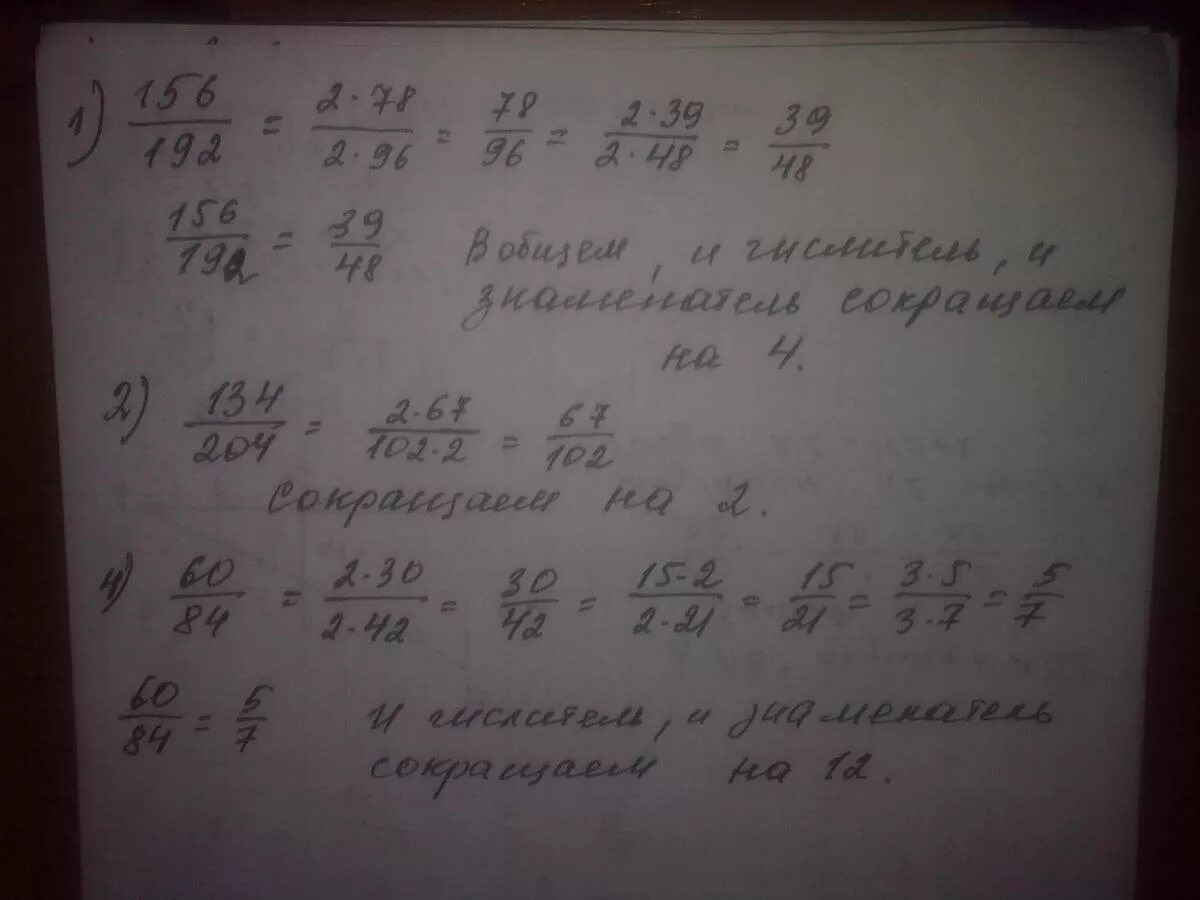 1) 156/192 = 2·78/2·96 = 78/96 = 2·39/2·48 = 39/48
156/192 = 39/48 Вобщем, и числитель, и
знаменатель сокращаем
на 4.
2) 134/204 = 2·67/102·2 = 67/102
сокращаем на 2.
4) 60/84 = 2·30/2·42 = 30/42 = 15·2/2·21 = 15/21 = 3·5/3·7 = 5/7
60/84 = 5/7 И числитель, и знаменатель
сокращаем на 12.